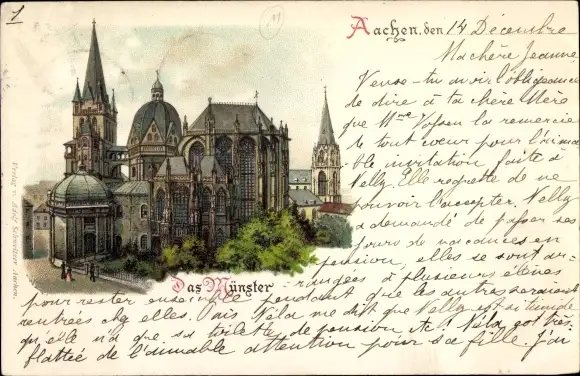 1
11
Aachen, den 14 Décembre
Ma chère Jeanne,
Veux-tu avoir l'obligeance
de dire à ta chère Mère
que Mme la remercie
de tout coeur pour l'aima
ble invitation faite à
Nelly. Elle regrette de ne
pouvoir l'accepter. Nelly
a demandé de passer ses
jours de vacances en
pension, elles se sont ar-
rangées à plusieurs élèves
pour rester ensemble pendant que les autres seraient
rentrées chez elles. Puis me dit que Nelly est si timide
qu'elle n'a que sa toilette de pension etc. ! est très-
flattée de l'aimable attention pour sa fille. J'ai
Das Münster
Verlag v. Jos. Schweitzer Aachen.